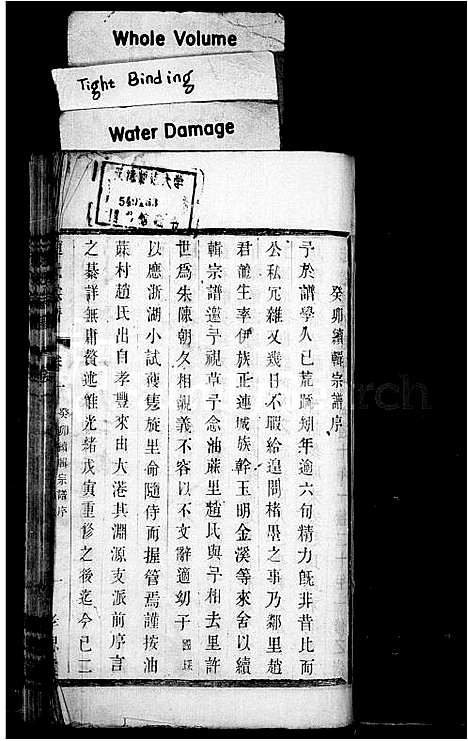 Whole Volume
Tight Binding
Water Damage
549263
癸卯續輯宗譜序
予於譜學久已荒踈矧年逾六旬精力旣非昔比而
公私冗雜又幾日不暇給遑問楮墨之事乃鄰里趙
君 生率伊族正連城族幹玉明金溪等來舍以續
輯宗譜邀予視草予念油蔴里趙氏與予相去里許
世爲朱陳朝久相親義不容以不文辭適幼子國琛
以應浙湖小試 售旋里命隨侍而握管焉謹按油
蔴村趙氏出自孝豐來由大港其淵源支派前序言
之綦詳無庸贅述惟光緒戊寅重修之後迄今已二
癸卯續輯宗譜序